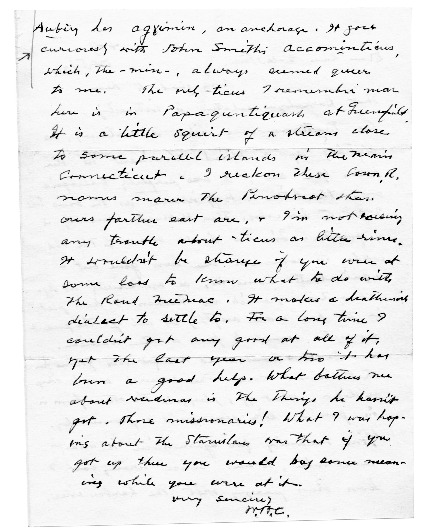 Aubéry has aggimin, an anchorage. It goes
curiously with John Smith's accominticus,
which, the -min-, always seemed queer
to me. The only -ticus I remember near
here is in Papaquntiquash at Greenfield.
It is a little squirt of a stream close
to some parallel islands in the main
Connecticut. I reckon these Conn. R.
names nearer the Penobscot than
ours farther east are, & I'm not raising
any trouble about -ticus as little rivers.
It wouldn't be strange if you were at
some loss to know what to do with
the Rand Micmac. It makes a deathish
dialect to settle to. For a long time I
couldn't get any good at all of it,
yet the last year or two it has
been a good help. What bothers me
about is the things he hasn't
got. Those missionaries! What I was hop-
ing about the Stanislaus was that if you
got up there you would bag some mean-
ing while you were at it.
very sincerely